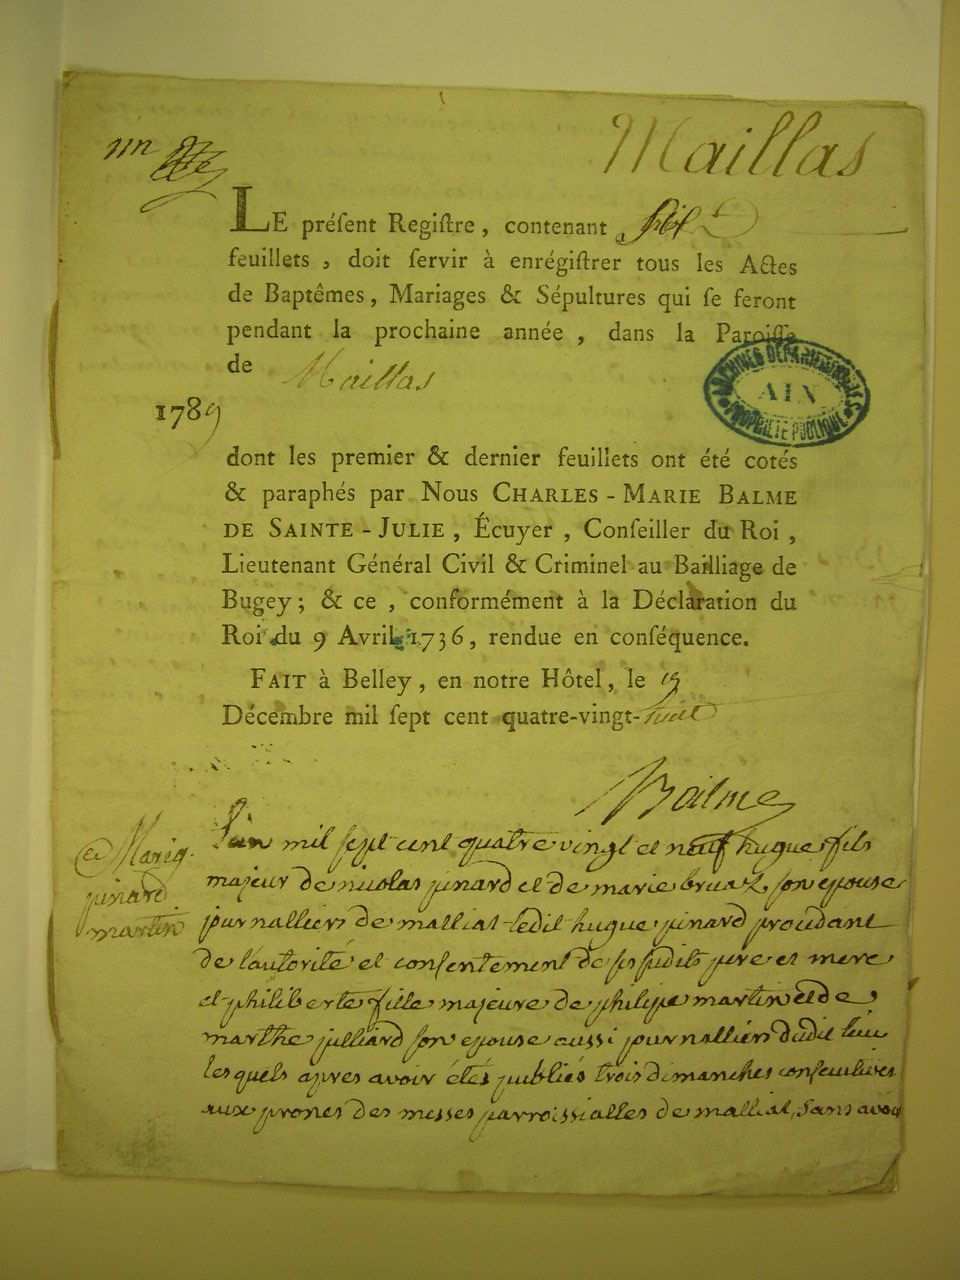 Maillas
LE préſent Regiſtre, contenant six
feuillets, doit ſervir à enrégiſtrer tous les Actes
de Baptêmes, Mariages & Sépultures qui ſe feront
pendant la prochaine année, dans la Paroiſſe
de Maillas
ARCHIVES DÉPARTEMENTALES
AIN
PROPRIÉTÉ PUBLIQUE
1789
dont les premier & dernier feuillets ont été cotés
& paraphés par Nous CHARLES-MARIE BALME
DE SAINTE-JULIE, Écuyer, Conſeiller du Roi,
Lieutenant Général Civil & Criminel au Bailliage de
Bugey; & ce, conformément à la Déclaration du
Roi du 9 Avril 1736, rendue en conſéquence.
FAIT à Belley, en notre Hôtel, le 19
Décembre mil ſept cent quatre-vingt-huit
Balme
Mariag.
jinard
martin
L'an mil sept cent quatre vingt et neuf hugue fils
majeur de nicolas jinard et de marie son epouse
journallien de malliat ledit hugue jinard
de l'autorité et consentement de ses sudits pere et mere
et philiberte fille majeure de philipe martin et de
marthe julliard son epouse aussi journallien dudit lieu
lesquels apres avoir étés publiés trois dimanches consecutives
aux prones des messes parroissialles de malliat, sans avoir